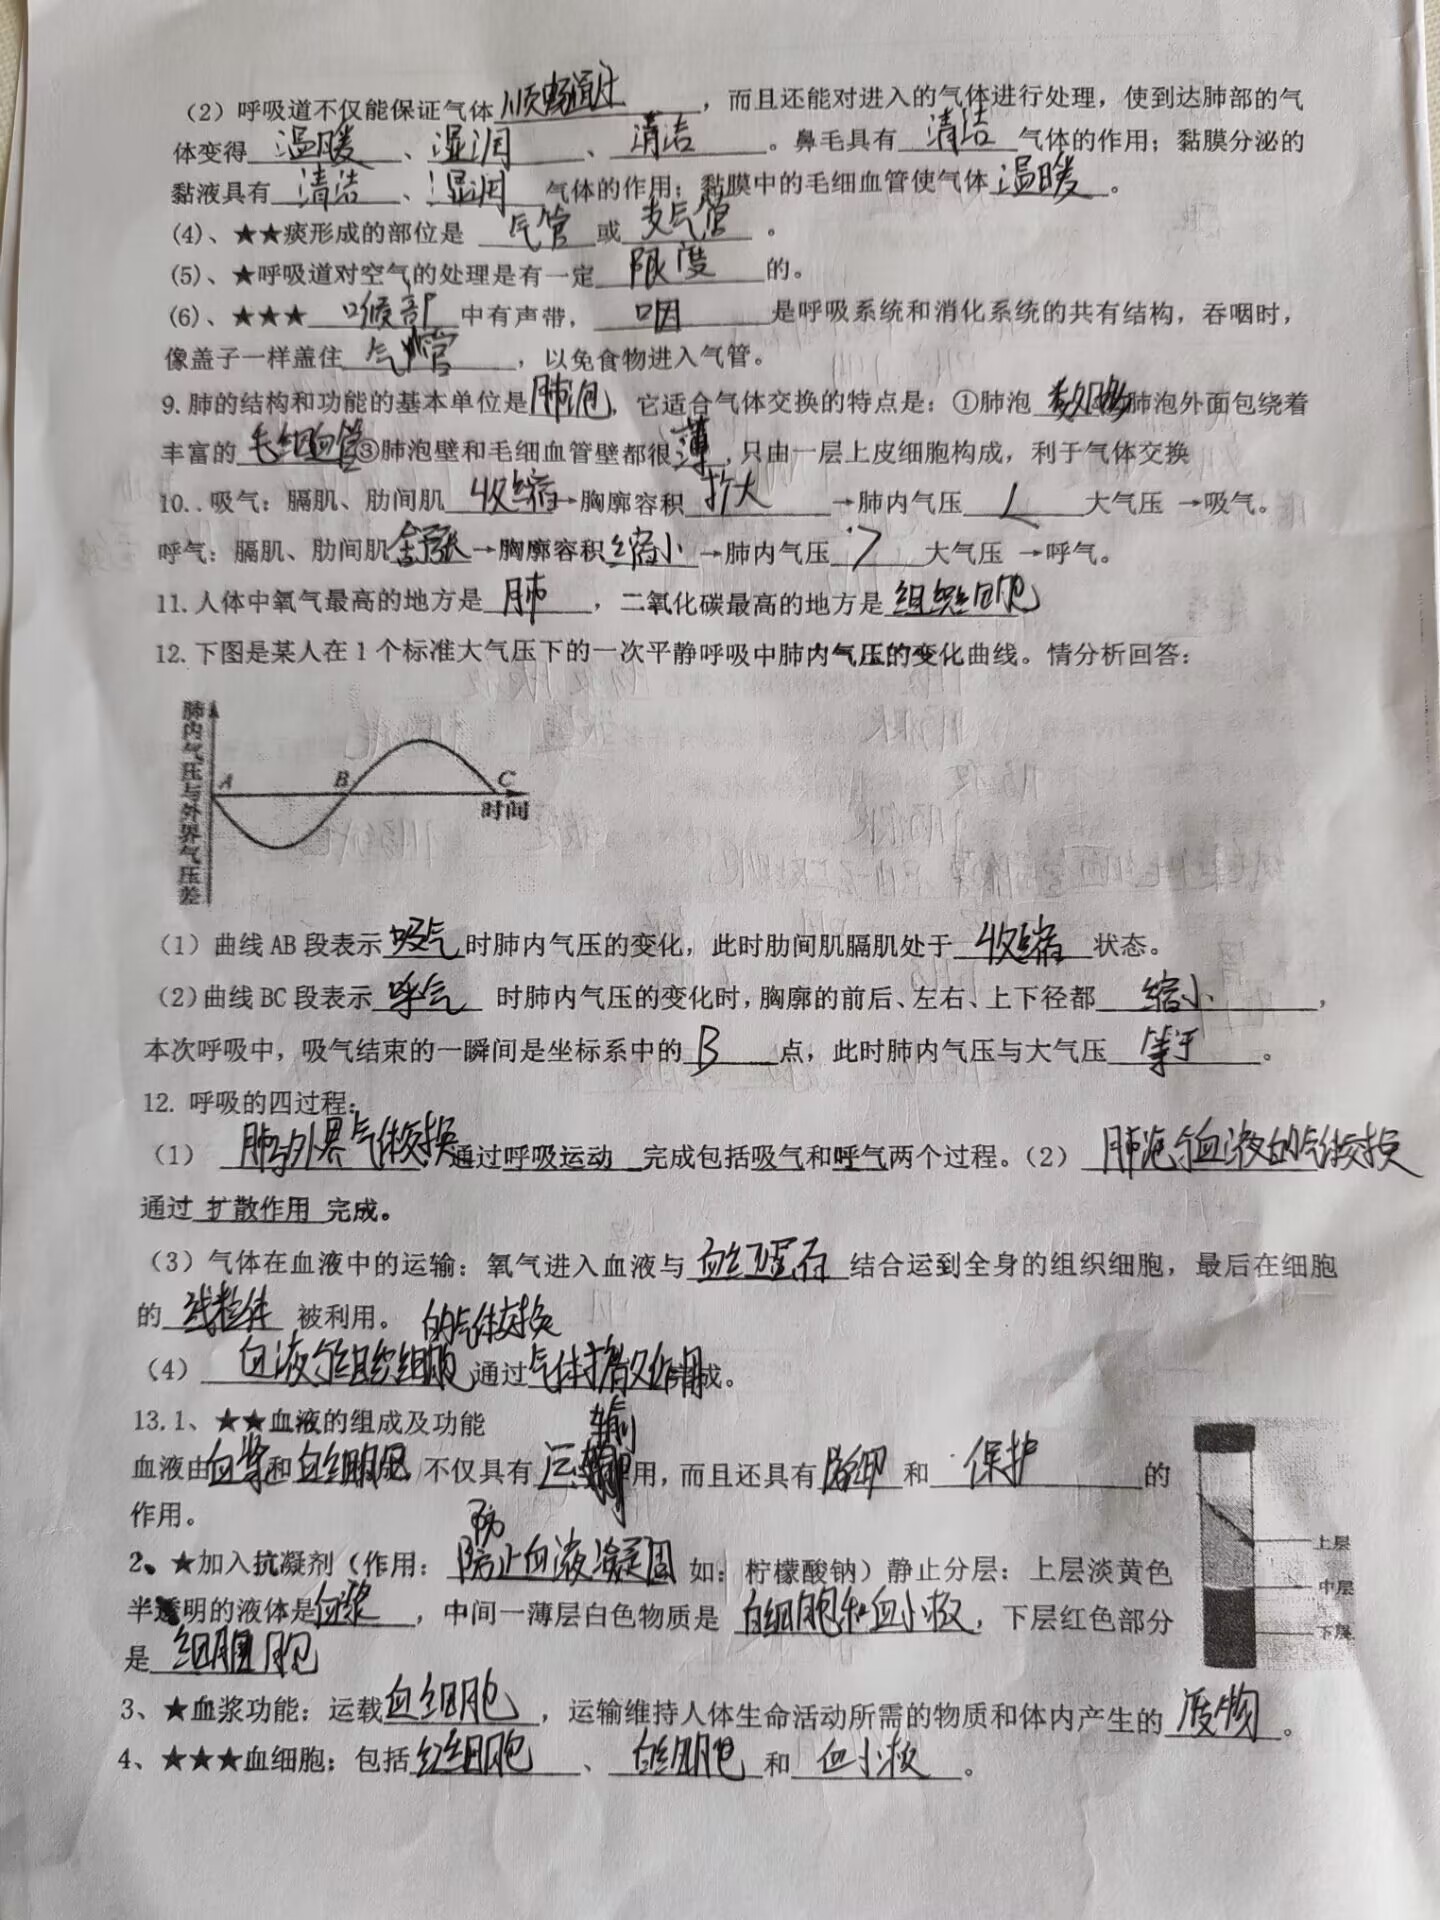 (2)呼吸道不仅能保证气体顺畅通过，而且还能对进入的气体进行处理，使到达肺部的气
体变得温暖、湿润、清洁。鼻毛具有清洁气体的作用；黏膜分泌的
黏液具有清洁、湿润气体的作用；黏膜中的毛细血管使气体温暖。
(4)、★★痰形成的部位是 气管或支气管。
(5)、★呼吸道对空气的处理是有一定限度的。
(6)、★★★喉部中有声带，咽是呼吸系统和消化系统的共有结构，吞咽时，
像盖子一样盖住气管，以免食物进入气管。
9.肺的结构和功能的基本单位是肺泡，它适合气体交换的特点是：①肺泡数目多肺泡外面包绕着
丰富的毛细血管③肺泡壁和毛细血管壁都很薄,只由一层上皮细胞构成，利于气体交换
10..吸气：膈肌、肋间肌收缩→胸廓容积扩大→肺内气压<大气压→吸气。
呼气：膈肌、肋间肌舒张→胸廓容积缩小→肺内气压>大气压→呼气。
11.人体中氧气最高的地方是肺，二氧化碳最高的地方是组织细胞
12.下图是某人在1个标准大气压下的一次平静呼吸中肺内气压的变化曲线。情分析回答：
肺内气压与外界气压差
A B C
时间
(1)曲线AB段表示吸气时肺内气压的变化，此时肋间肌膈肌处于收缩状态。
(2)曲线BC段表示呼气时肺内气压的变化时，胸廓的前后、左右、上下径都缩小，
本次呼吸中，吸气结束的一瞬间是坐标系中的B点，此时肺内气压与大气压等于。
12. 呼吸的四过程：
(1)肺与外界气体交换通过呼吸运动 完成包括吸气和呼气两个过程。(2)肺泡与血液的气体交换
通过扩散作用 完成。
(3)气体在血液中的运输：氧气进入血液与血红蛋白结合运到全身的组织细胞，最后在细胞
的线粒体被利用。
的气体交换
(4)血液与组织细胞通过气体扩散作用成。
13.1、★★血液的组成及功能
血液由血浆和血细胞 不仅具有运输用，而且还具有防御和保护的
作用。
2、★加入抗凝剂（作用：防止血液凝固 如：柠檬酸钠）静止分层：上层淡黄色
半透明的液体是血浆，中间一薄层白色物质是白细胞和血小板，下层红色部分
是
3、★血浆功能：运载血细胞，运输维持人体生命活动所需的物质和体内产生的废物。
4、★★★血细胞：包括红细胞、白细胞和血小板。
上层
中层
下层